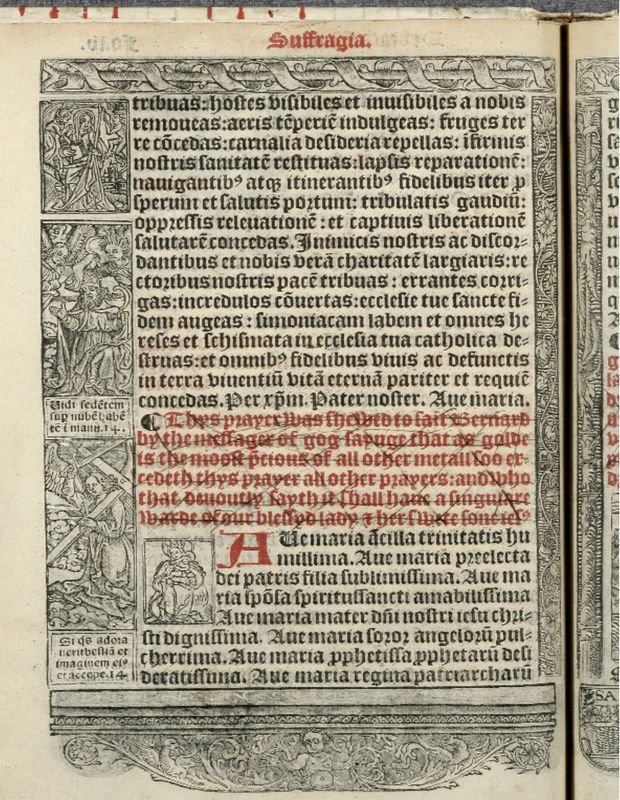 Suffragia.
tribuas: hostes visibiles et inuisibiles a nobis
remoueas: aeris tẽperiẽ indulgeas: fruges ter
re cõcedas: carnalia desideria repellas: ĩfirmis
nostris sanitatẽ restituas: lapsis reparationẽ:
nauigantibꝰ atqꝫ itinerantibꝰ fidelibus iter ꝓ
sperum et salutis portum: tribulatis gaudiũ:
oppressis releuationẽ: et captiuis liberationẽ
salutarẽ concedas. Inimicis nostris ac discor-
dantibus et nobis verã charitatẽ largiaris: re
ctoribus nostris pacẽ tribuas: errantes corri-
gas: incredulos cõuertas: ecclesie tue sancte fi-
dem augeas: simoniacam labem et omnes he
reses et schismata in ecclesia tua catholica de-
struas: et omnibꝰ fidelibus viuis ac defunctis
in terra viuentiũ vitã eternã pariter et requiẽ
concedas. Per xpm̃. Pater noster. Aue maria.
Uidi sedẽtem
sup nubẽ habẽ
tẽ i manu. 14.
¶ Thys prayer was shewed to sait Bernard
by the messager of gog sayuge that as golde
is the moost p̃cious of all other metall soo ex-
cedeth thys prayer all other prayers: and who
that deuoutly sayth it shall haue a singulere
warde of our blessyd lady ⁊ her swete sone iesꝰ
Aue maria ãcilla trinitatis hu
millima. Aue maria preelecta
dei patris filia sublimissima. Aue ma
ria spõsa spiritussancti amabilissima
Aue maria mater dñi nostri iesu chri-
sti dignissima. Aue maria soror angelorũ pul-
cherrima. Aue maria ꝓphetissa ꝓphetarũ desi
deratissima. Aue maria regina patriarcharũ
Si qs adora
uerit bestiã et
imaginem eiꝰ
et accepe. 14.
SA